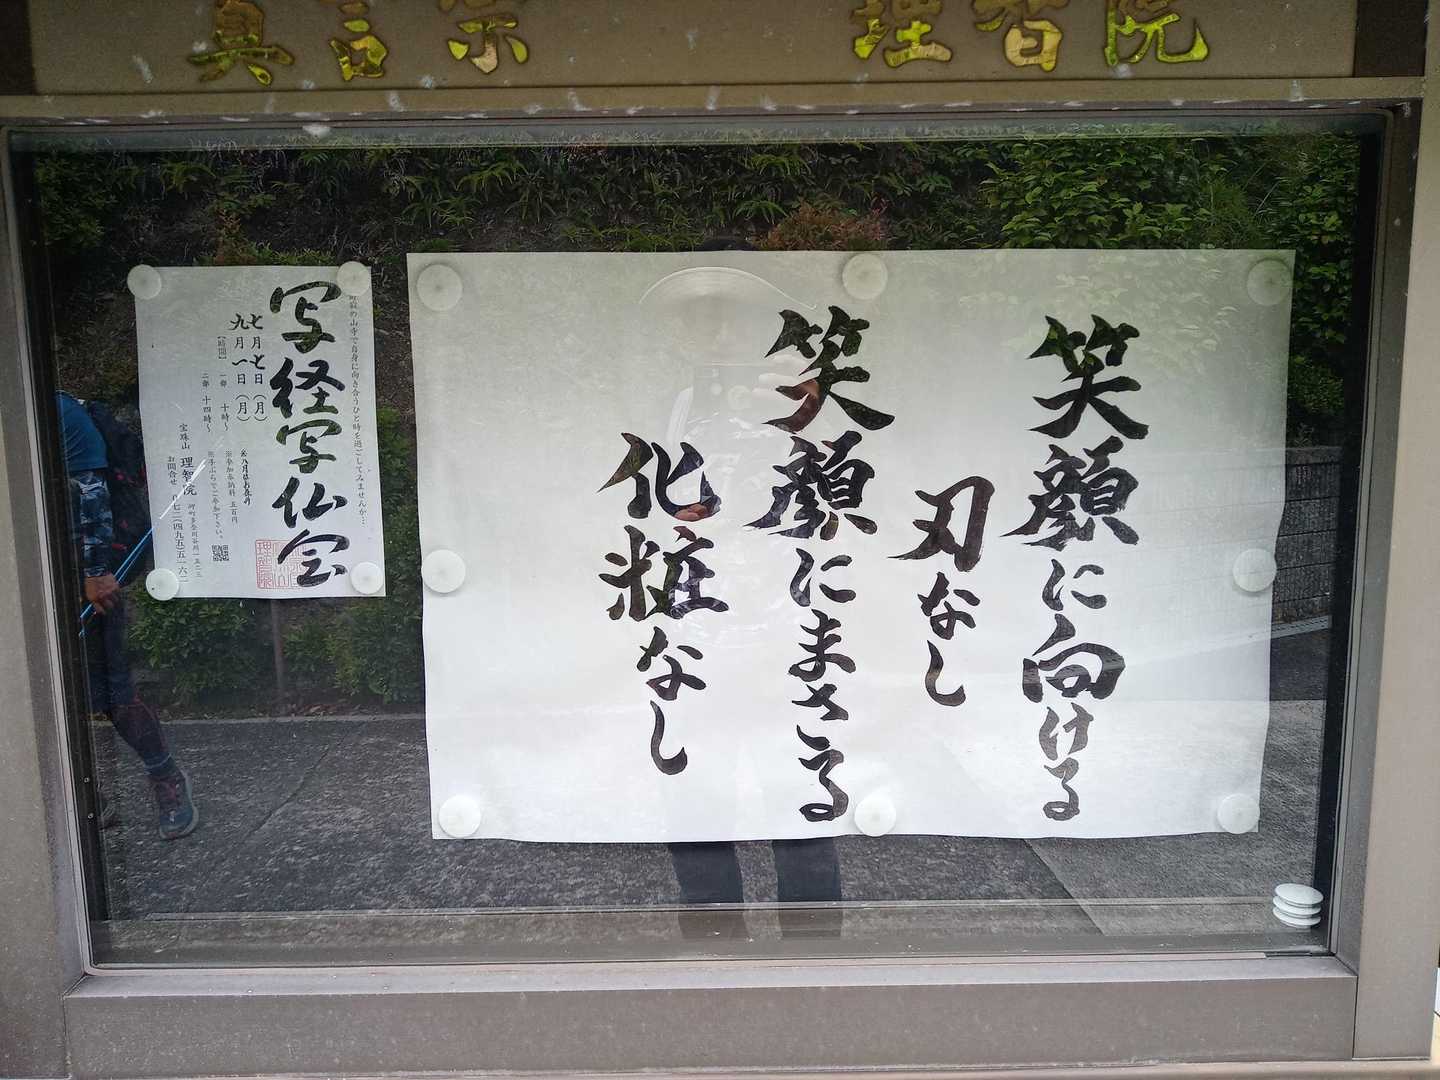 真言宗　理智院
笑顔に向ける
刃なし
笑顔にまさる
化粧なし
の山寺で自身に向き合うひと時を過ごしてみませんか…
写経写仏会
七月七日（月）
九月一日（月）
【時間】一部　十時～
二部　十四時～
※八月はお休み
※参加奉納料　五百円
※手ぶらでご参加下さい。
宝珠山　理智院
岬町多奈川谷川一五二三
お問合せ　〇七二（四九五）五一六一